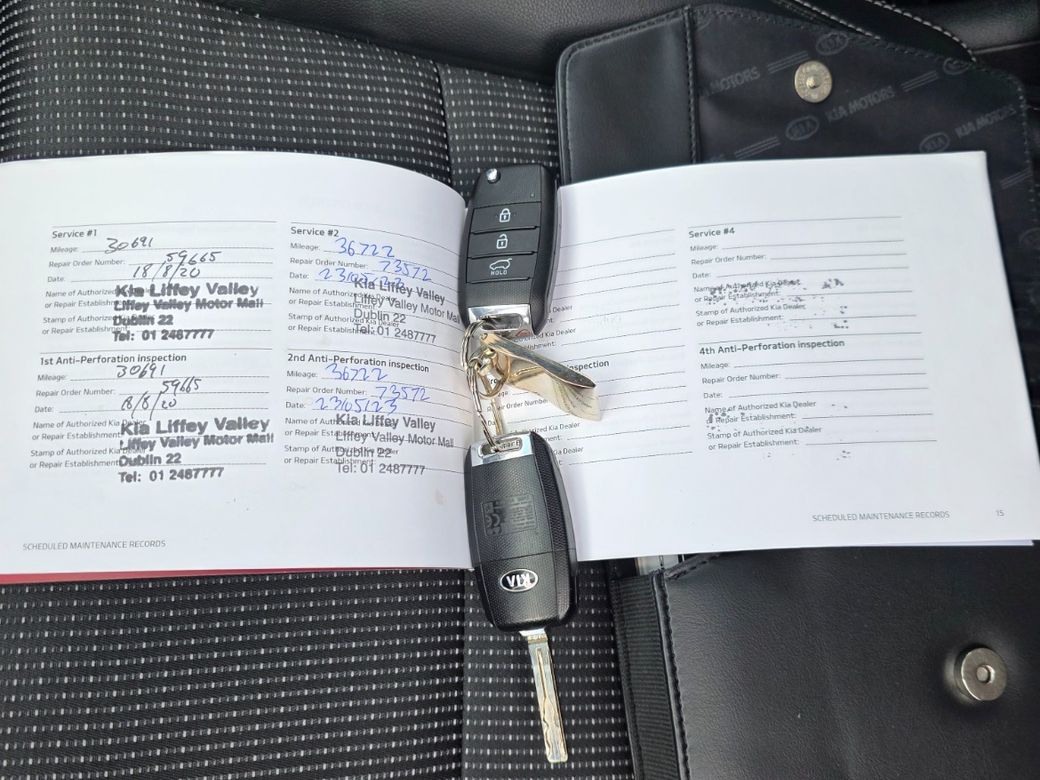 KIA MOTORS
KIA MOTORS
KIA MOTORS
Service #1
Mileage: 30691
Repair Order Number: 59665
Date: 18/8/20
Name of Authorized Kia Dealer
or Repair Establishment:
Kia Liffey Valley
Liffey Valley Motor Mall
Stamp of Authorized Kia Dealer
or Repair Establishment:
Dublin 22
Tel: 01 2487777
1st Anti-Perforation inspection
Mileage: 30691
Repair Order Number: 59665
Date: 18/8/20
Name of Authorized Kia Dealer
or Repair Establishment
Kia Liffey Valley
Liffey Valley Motor Mall
Stamp of Authorized Kia Dealer
or Repair Establishment:
Dublin 22
Tel: 01 2487777
SCHEDULED MAINTENANCE RECORDS
Service #2
Mileage: 36722
Repair Order Number: 73572
Date:
Name of Authorized Kia Dealer
or Repair Establishment
Kia Liffey Valley
Liffey Valley Motor Mall
Dublin 22
Stamp of Authorized Kia Dealer
or Repair Establishment:
Tel: 01 2487777
2nd Anti-Perforation inspection
Mileage: 36722
Repair Order Number: 73572
Date: 23/05/23
Name of Authorized Kia Dealer
or Repair Establishment
Kia Liffey Valley
Liffey Valley Motor Mall
Stamp of Authorized Kia Dealer
or Repair Establishment:
Dublin 22
Tel: 01 2487777
HOLD
KIA
Kia Dealer
inspection
Number:
Kia Dealer
Kia Dealer
Service #4
Mileage:
Repair Order Number:
Date:
Name of Authorized Kia Dealer
or Repair Establishment:
Stamp of Authorized Kia Dealer
or Repair Establishment:
4th Anti-Perforation inspection
Mileage:
Repair Order Number:
Date:
Name of Authorized Kia Dealer
or Repair Establishment:
Stamp of Authorized Kia Dealer
or Repair Establishment:
SCHEDULED MAINTENANCE RECORDS 15